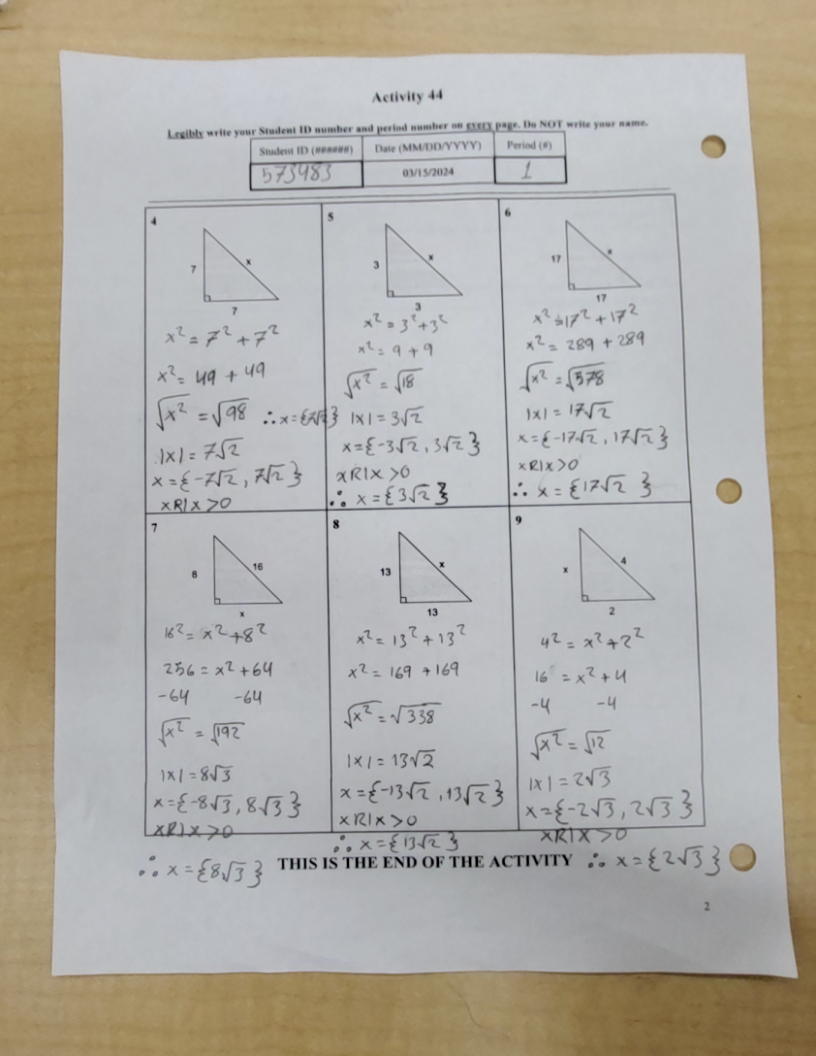 Activity 44
Legibly write your Student ID number and period number on every page. Do NOT write your name.
Student ID (######) Date (MM/DD/YYYY) Period (#)
573483 03/15/2024 1
4
7
x
7
x² = 7² + 7²
x² = 49 + 49
√x² = √98 ∴ x = {7√2}
|x| = 7√2
x = {-7√2, 7√2}
xR|x >0
5
3
x
3
x² = 3² + 3²
x² = 9 + 9
√x² = √18
|x| = 3√2
x = {-3√2, 3√2}
xR|x >0
∴ x = {3√2}
6
17
x
17
x² = 17² + 17²
x² = 289 + 289
√x² = √578
|x| = 17√2
x = {-17√2, 17√2}
xR|x >0
∴ x = {17√2}
7
8
16
x
16² = x² + 8²
256 = x² + 64
-64 -64
√x² = √192
|x| = 8√3
x = {-8√3, 8√3}
xR|x >0
∴ x = {8√3}
8
13
x
13
x² = 13² + 13²
x² = 169 + 169
√x² = √338
|x| = 13√2
x = {-13√2, 13√2}
xR|x >0
∴ x = {13√2}
9
x
4
2
4² = x² + 2²
16 = x² + 4
-4 -4
√x² = √12
|x| = 2√3
x = {-2√3, 2√3}
xR|x >0
∴ x = {2√3}
THIS IS THE END OF THE ACTIVITY
2